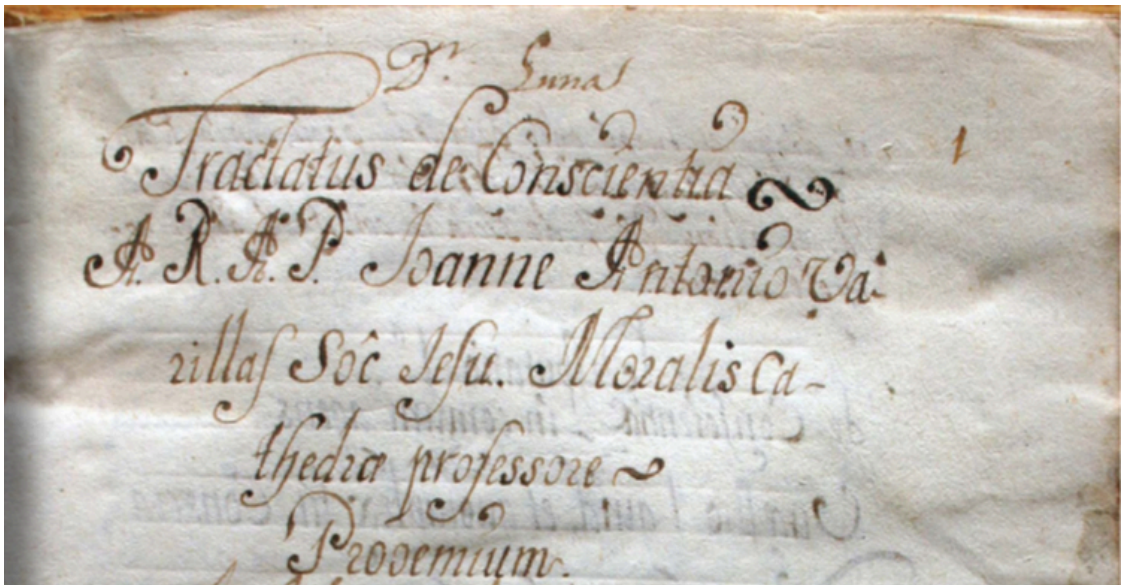 Dr. Luna
1
Tractatus de Conscientia
A. R. A. P. Ioanne Antonio Va-
rillas Soc Iesu. Moralis Ca-
thedræ professore
Prooemium.